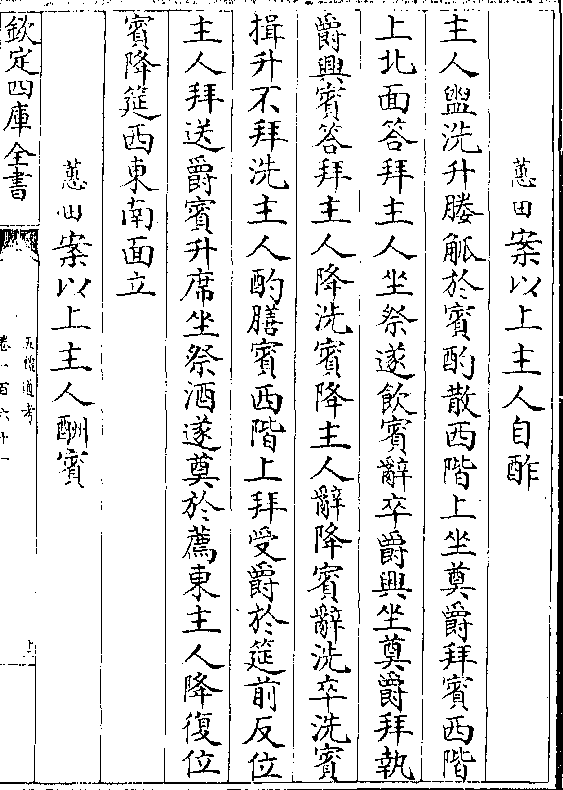 蕙田案以上主人自酢
主人盥洗升媵觚於賓酌散西階上坐奠爵拜賓西階
上北面答拜主人坐祭遂飲賓辭卒爵興坐奠爵拜執
爵興賓答拜主人降洗賓降主人辭降賓辭洗卒洗賓
揖升不拜洗主人酌膳賓西階上拜受爵於筵前反位
主人拜送爵賓升席坐祭酒遂奠於薦東主人降復位
賓降筵西東南面立
蕙田案以上主人酬賓
欽定四庫全書
五禮通考
卷一百六十一